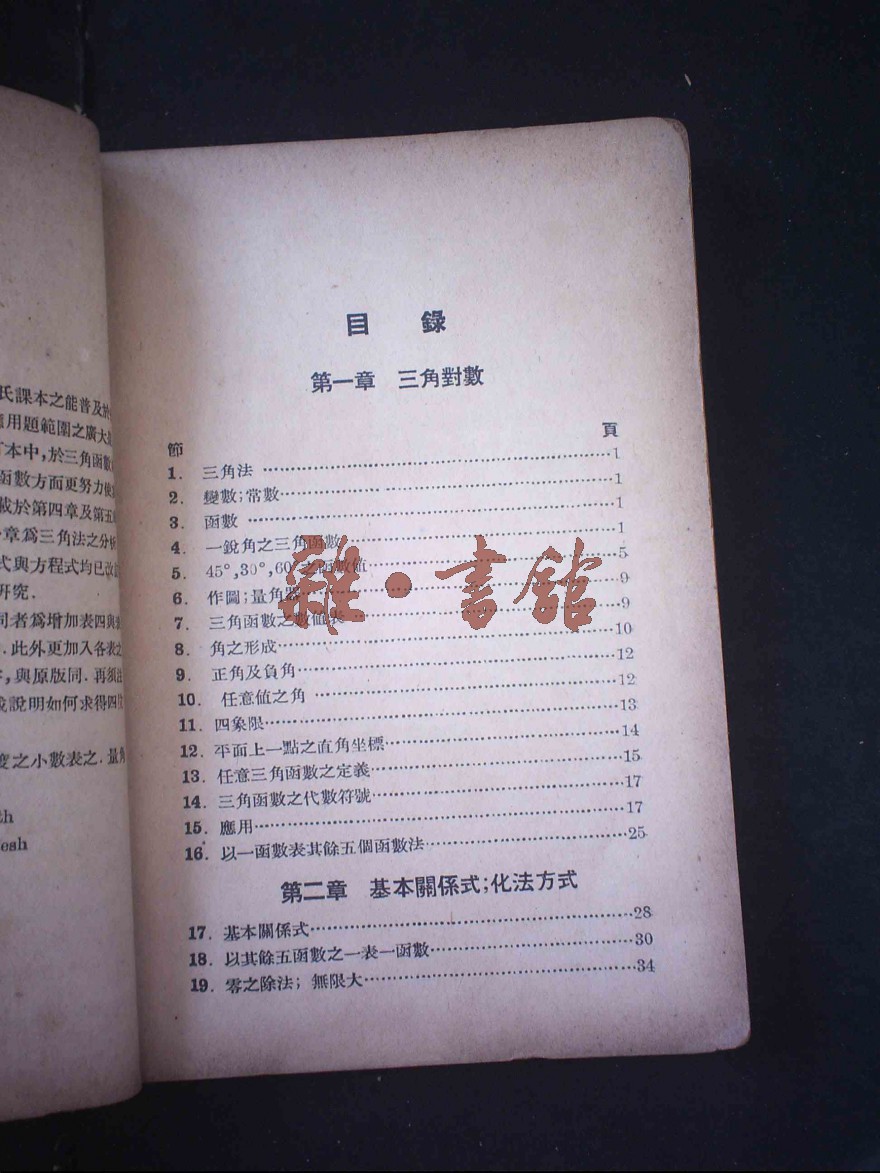 氏課本之能普及於
應用題範圍之廣大
本中,於三角函數
函數方面更努力使
載於第四章及第五
章爲三角法之分析
式與方程式均已改
研究.
同者爲增加表四與
.此外更加入各表之
,與原版同.再須
說明如何求得四位
度之小數表之.量角
th
esh
目 錄
第一章 三角對數
節 頁
1. 三角法 1
2. 變數;常數 1
3. 函數 1
4. 一銳角之三角函數 1
5. 45°,30°,60°之函數值 5
6. 作圖;量角器 9
7. 三角函數之數值表 9
8. 角之形成 10
9. 正角及負角 12
10. 任意值之角 12
11. 四象限 13
12. 平面上一點之直角坐標 14
13. 任意三角函數之定義 15
14. 三角函數之代數符號 17
15. 應用 17
16. 以一函數表其餘五個函數法 25
第二章 基本關係式;化法方式
17. 基本關係式 28
18. 以其餘五函數之一表一函數 30
19. 零之除法;無限大 34
雜·書館